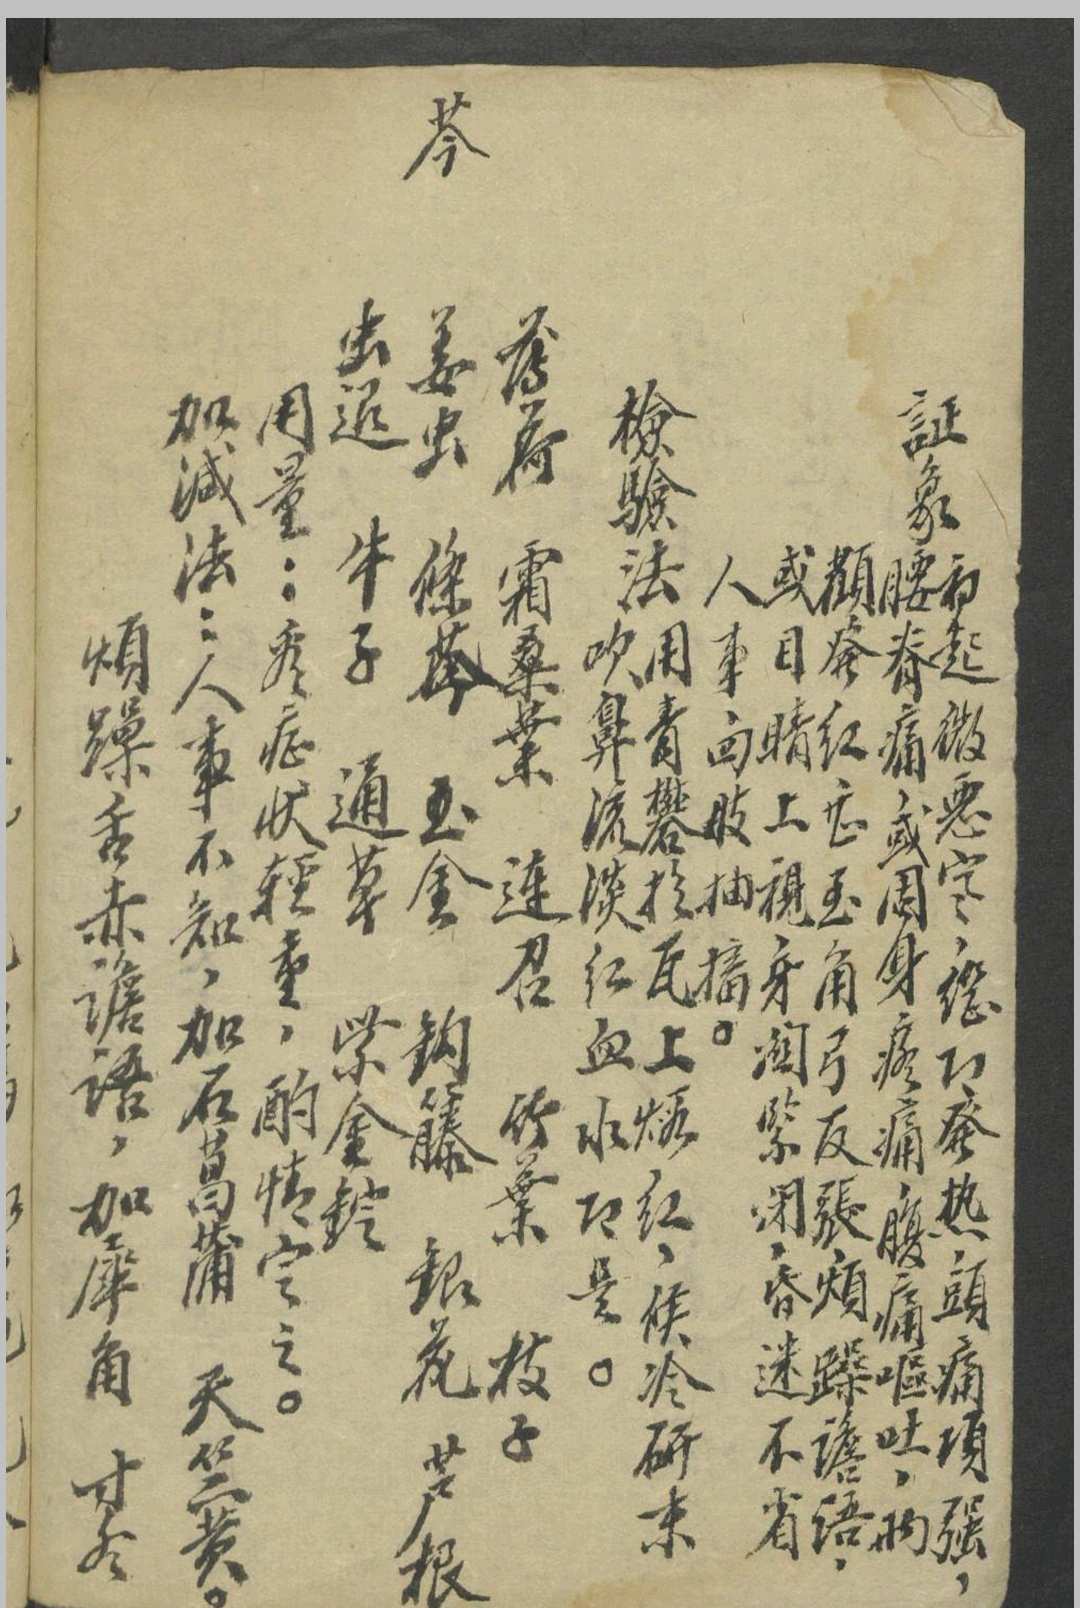 証象
初起微恶寒，継即發热，頭痛項强，
腰脊痛，或周身疼痛，腹痛嘔吐，両
顴發红，甚至角弓反張，煩躁譫語，
或目睛上視，牙関緊闭，昏迷不省
人事，四肢抽搐。
檢驗法
用青礬於瓦上煅红，候冷研末
吹鼻流淡红血水即是。
薄荷　霜桑葉　連召　竹葉　枝子
姜虫　條芩　玉金　鈎籐　銀花　芦根
芩
虫退　牛子　通草　紫金錠
用量：看症状輕重，酌情定之。
加减法：人事不知，加石菖蒲　天竺黄。
煩躁舌赤譫語，加犀角　寸冬